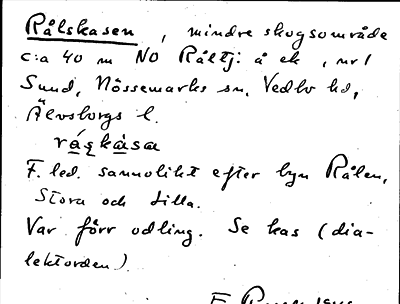 Rålskasen, mindre skogsområde
c:a 40 m NO Råltj. å ek, nr 1
Sund, Nössemarks sn, Vedbo hd,
Älvsborgs l.
råskåsa
F. led. sannolikt efter byn Rålen,
Stora och Lilla.
Var förr odling. Se kas (dia-
lektorden).